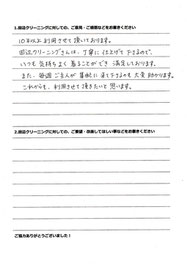 1.田辺クリーニングに対しての、ご意見・ご感想などをお書きください
10年以上利用させて頂いております。
田辺クリーニングさんは、丁寧に仕上げて下さるので、
いつも気持ちよく着ることができ 満足しております。
また、毎週 ご主人が 集配に 来て下さるのも 大変 助かります。
これからも、利用させて頂きたいと思います。
2.田辺クリーニングに対しての、ご要望・改善してほしい事などをお書きください
ご協力ありがとうございました！